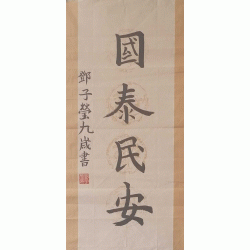 國泰民安
鄧子瑩九歲書